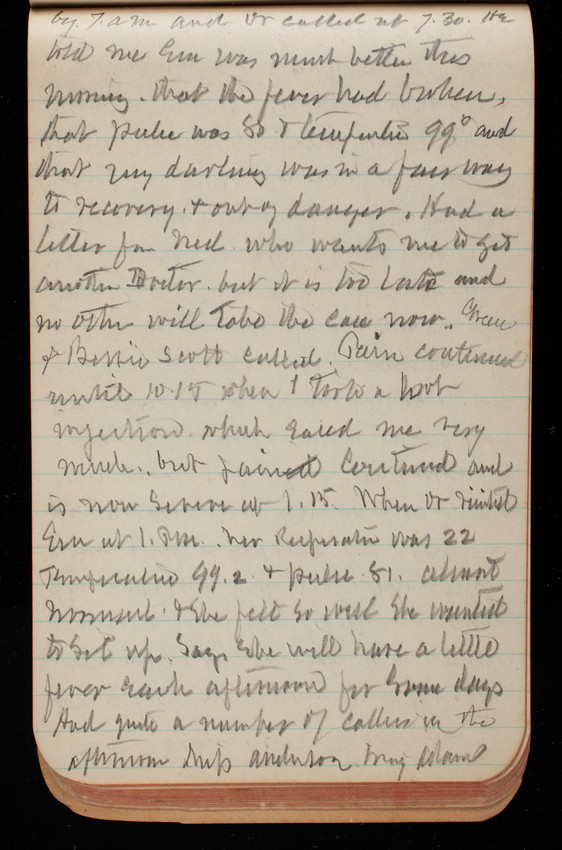 by 7. am and Dr called at 7.30. He
told me Em was much better this
morning. that the fever had broken,
that pulse was 80 & temperature 99° and
that my darling was in a fair way
to recovery. & out of danger. Had a
letter from Ned who wants me to get
another Doctor. but it is too late and
no other will take the case now.
& Bessie Scott called. Pain continued
until 10.15 when I took a hot
injection which eased me very
much. but pain continued and
is now severe at 1.15. When Dr visited
Em at 1. P.M. her Respiration was 22
Temperature 99.2 & pulse 81. almost
normal. & she felt so well she wanted
to sit up. Says she will have a little
fever each afternoon for some days
Had quite a number of callers in the
afternoon Anderson Adams